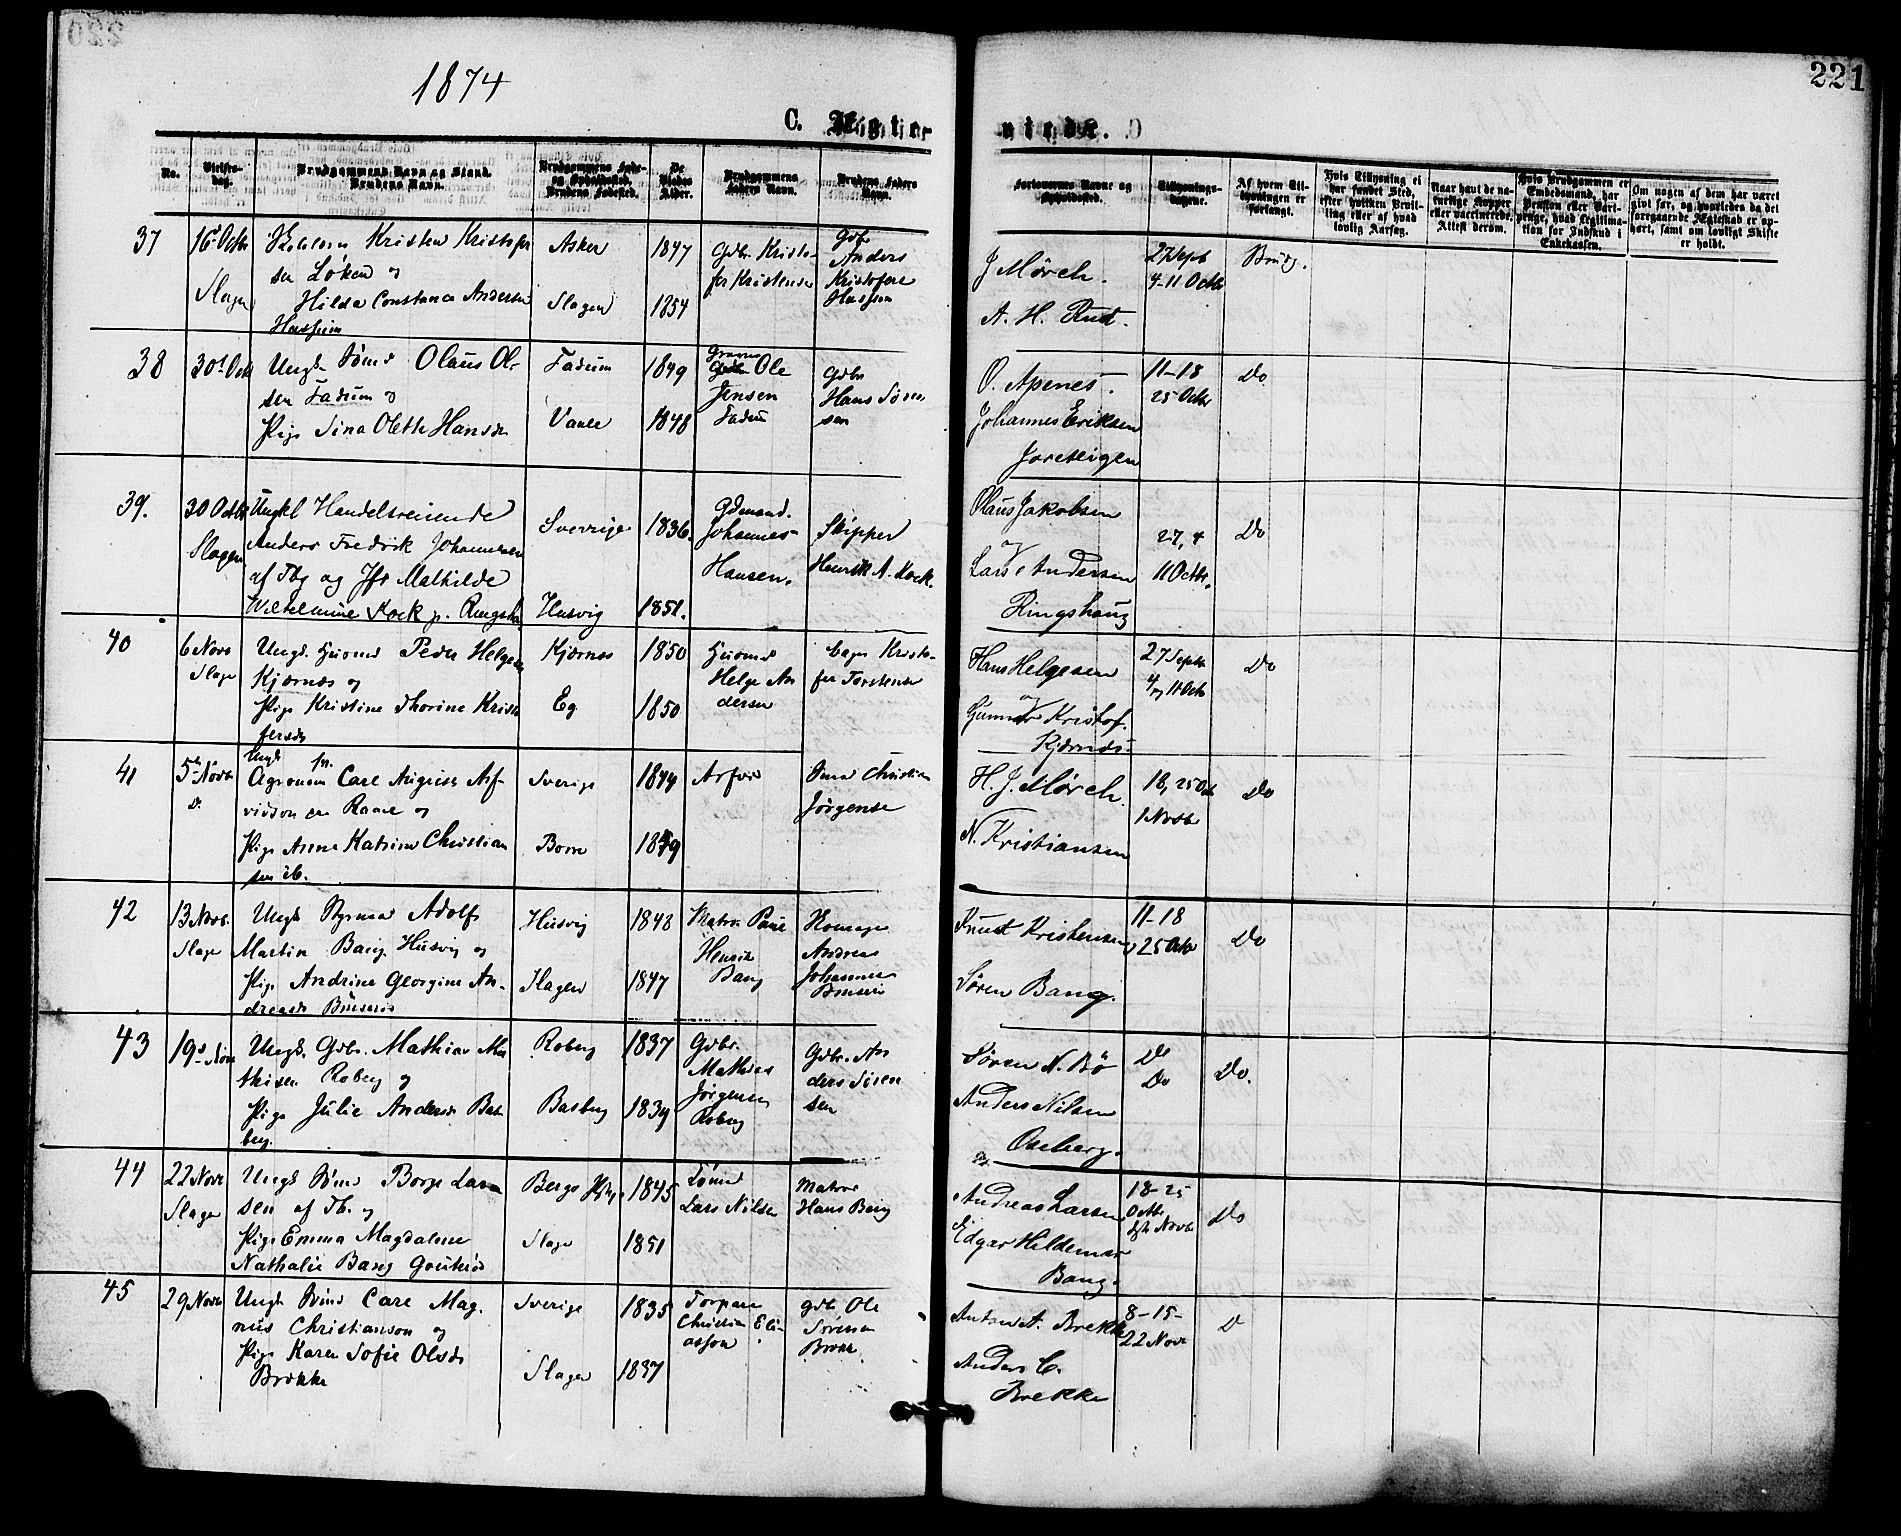 1874
221
C. Egtev
iede.
No.
Vielses-
dag.
Brudgommens Navn og Stand.
Brudens Navn.
Brudgommens Føde-
og Opholdssted.
Brudens Fødested.
De
Viedes
Alder.
Brudgommens
Faders Navn.
Brudens Faders
Navn.
Forlovernes Navne og
Opholdssted.
Tillysnings-
dagene.
Af hvem Til-
lysningen er
forlangt.
Hvis Tillysning ei
har fundet Sted,
efter hvilken Bevil-
ling eller af hvad
lovlig Aarsag.
Naar havt de na-
turlige Kopper
eller vaccinerede.
Attest derom.
Hvis Brudgommen er
Embedsmand, har
Pension eller Vart-
penge, hvad Legitima-
tion for Indskud i
Enkekassen.
Om nogen af dem har været
givt før, og hvorledes da det
foregaaende Ægteskab er op-
hørt, samt om lovligt Skifte
er holdt.
37
16 Octbr
Slagen
Kristen Kristofer
sen Løken og
Hilda Constance Andersen
Hassum
Asker
Slagen
1847
1854
Gdbr. Kristo-
fer Kristensen
Gdbr
Anders
Kristofers
Hassum
J Mørch.
A. H. Rud.
27 Septb
4-11 Octbr
Brudg.
38
30 Octb
Ungk Sømd Olaus Ol-
sen Fadum og
Pige Sina Olette Hansdr
Fadum
Vaale
1849
1848
Ole
Jensen
Fadum
Gdbr
Hans Søren
sen
O. Apenes.
Johannes Eriksen
11-18
25 Octbr
Do
39.
30 Octbr
Slagen
Ungkl Handelsreisende
Anders Fredrik Johannesen
af Tbg og Jfr Mathilde
Wilhelmine Kock p. Ringsh.
Sverrige
Husvig
1836.
1851.
Gdmand.
Johannes
Hansen.
Skipper
Henrik A. Kock.
Olaus Jakobsen
og
Lars Andersen
Ringshaug
27, 4
11 Octbr.
Do
40
6 Novb
Slage
Ungk. Peder Helgesen
Kjærnæs og
Pige Kristine Thorine Krist
fersdr
Kjærnes
Eg
1850
1850
Helge An
dersen
Kristo-
fer Torstensen
Hans Helgesen
og
Gunnar Kristof.
Kjærnæs.
27 Septb
4 og 11 Octb
Do
41
5 Novb
Ungk
Agronom Carl August Arf-
vidson paa Raare og
Pige Anne Katrine Christian
sen ib.
Sverige
Borre
1844
1849
Arfvid
Christian
Jørgensen
H. J. Mørch.
N. Kristiansen
18, 25 Oct
1 Novbr
Do
42
13 Novb.
Slage
Ungk Styrmd Adolf
Martin Bang Husvig og
Pige Andrine Georgine An-
dreasdr
Husvig
Slagen
1848
1847
Matros Paul
Henrik
Bang
Andreas
Johannesen
Knut Kristensen
Søren Bang.
11-18
25 Octbr
Do
43
19 Nov
Ungk. Gdbr. Mathias Ma
thisen Roberg og
Pige Julie Andersdr Bas
berg.
Roberg
Basberg
1837
1834
Gdbr.
Mathias
Jørgensen
Roberg
Gdbr. An
ders Søren
sen
Søren N. Bø
Anders Nilsen
Oseberg.
Do
Do
Do.
44
22 Novb
Slage
Ungk Sømd Børge Lar
sen af Tb. og
Pige Emma Magdalene
Nathalie Bang
Slage
1845
1851
Lars Nilsen
Matros
Hans Bang
Andreas Larsen
Edgar Hildemar
Bang.
18-25
Octbr
1ste Novb
Do
45
29 Novb
Ungk Sømd Carl Mag.
nus Christianson og
Pige Karen Sofie Olsdr
Brekke
Sverige
Slagen
1835
1837
Torpare
Christian Eli-
asson
Gdbr Ole
Sørensen
Brekke
Anton A. Brekke
Anders C.
Brekke
8-15-
22 Novr
D